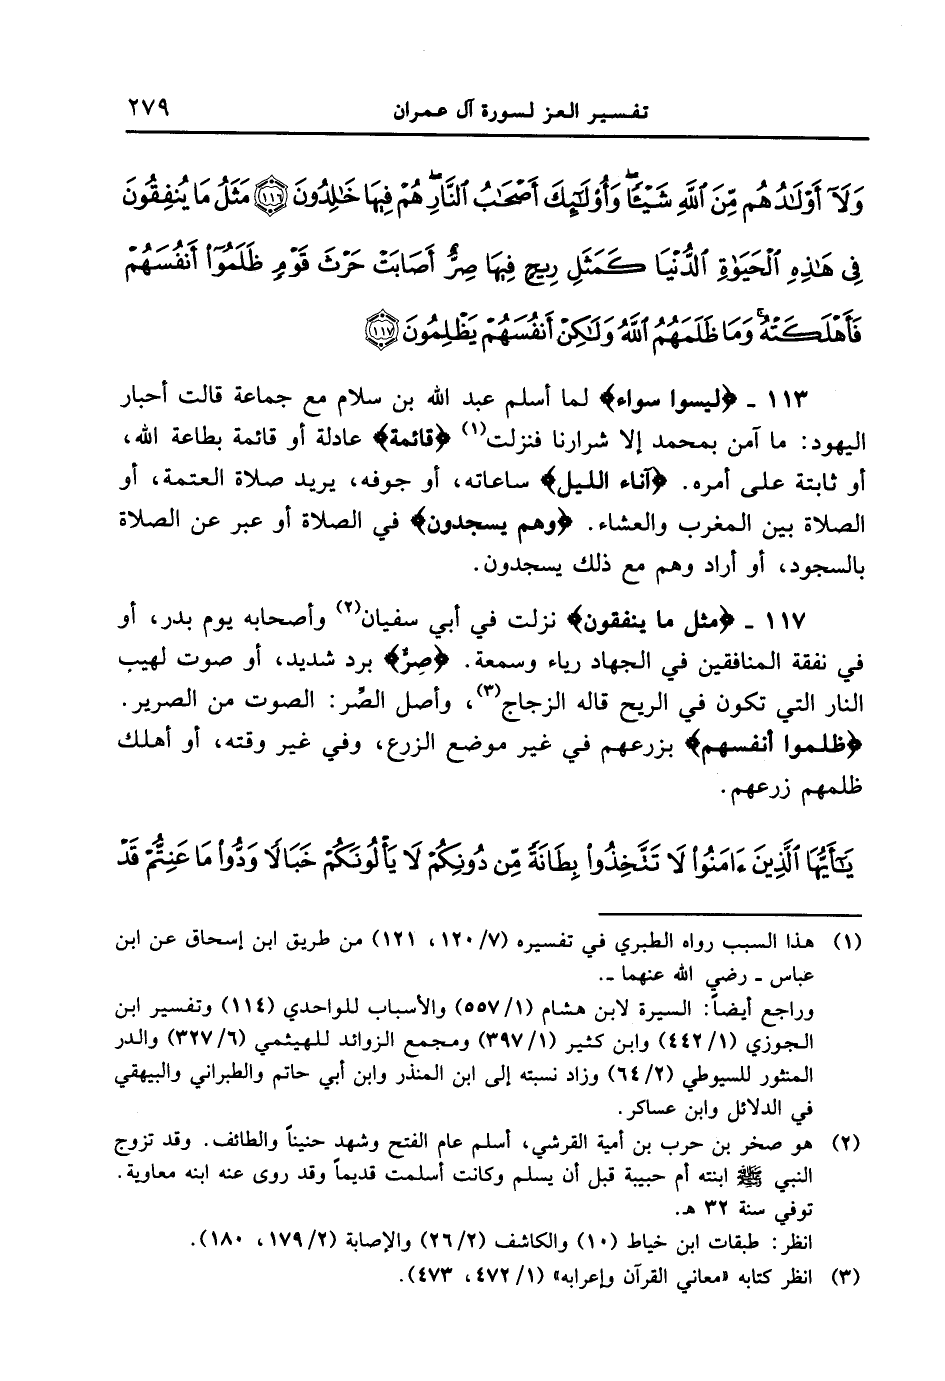 تفسير العز لسورة آل عمران ٢٧٩
وَلَآ أَوْلَٰدُهُم مِّنَ ٱللَّهِ شَيْـًٔا ۖ وَأُو۟لَٰٓئِكَ أَصْحَٰبُ ٱلنَّارِ ۚ هُمْ فِيهَا خَٰلِدُونَ ١١٦ مَثَلُ مَا يُنفِقُونَ
فِى هَٰذِهِ ٱلْحَيَوٰةِ ٱلدُّنْيَا كَمَثَلِ رِيحٍ فِيهَا صِرٌّ أَصَابَتْ حَرْثَ قَوْمٍ ظَلَمُوٓا۟ أَنفُسَهُمْ
فَأَهْلَكَتْهُ ۚ وَمَا ظَلَمَهُمُ ٱللَّهُ وَلَٰكِنْ أَنفُسَهُمْ يَظْلِمُونَ ١١٧
١١٣ ـ ﴿ليسوا سواء﴾ لما أسلم عبد الله بن سلام مع جماعة قالت أحبار
اليهود: ما آمن بمحمد إلا شرارنا فنزلت(١) ﴿قائمة﴾ عادلة أو قائمة بطاعة الله،
أو ثابتة على أمره. ﴿آناء الليل﴾ ساعاته، أو جوفه، يريد صلاة العتمة، أو
الصلاة بين المغرب والعشاء. ﴿وهم يسجدون﴾ في الصلاة أو عبر عن الصلاة
بالسجود، أو أراد وهم مع ذلك يسجدون.
١١٧ ـ ﴿مثل ما ينفقون﴾ نزلت في أبي سفيان(٢) وأصحابه يوم بدر، أو
في نفقة المنافقين في الجهاد رياء وسمعة. ﴿صِرٌّ﴾ برد شديد، أو صوت لهيب
النار التي تكون في الريح قاله الزجاج(٣)، وأصل الصِّر: الصوت من الصرير.
﴿ظلموا أنفسهم﴾ بزرعهم في غير موضع الزرع، وفي غير وقته، أو أهلك
ظلمهم زرعهم.
يَٰٓأَيُّهَا ٱلَّذِينَ ءَامَنُوا۟ لَا تَتَّخِذُوا۟ بِطَانَةً مِّن دُونِكُمْ لَا يَأْلُونَكُمْ خَبَالًا وَدُّوا۟ مَا عَنِتُّمْ قَدْ
(١) هذا السبب رواه الطبري في تفسيره (٧/ ١٢٠، ١٢١) من طريق ابن إسحاق عن ابن
عباس ـ رضي الله عنهما ـ.
وراجع أيضاً: السيرة لابن هشام (١/ ٥٥٧) والأسباب للواحدي (١١٤) وتفسير ابن
الجوزي (١/ ٤٤٢) وابن كثير (١/ ٣٩٧) ومجمع الزوائد للهيثمي (٦/ ٣٢٧) والدر
المنثور للسيوطي (٢/ ٦٤) وزاد نسبته إلى ابن المنذر وابن أبي حاتم والطبراني والبيهقي
في الدلائل وابن عساكر.
(٢) هو صخر بن حرب بن أمية القرشي، أسلم عام الفتح وشهد حنيناً والطائف. وقد تزوج
النبي ﷺ ابنته أم حبيبة قبل أن يسلم وكانت أسلمت قديماً وقد روى عنه ابنه معاوية.
توفي سنة ٣٢ هـ.
انظر: طبقات ابن خياط (١٠) والكاشف (٢/ ٢٦) والإصابة (٢/ ١٧٩، ١٨٠).
(٣) انظر كتابه «معاني القرآن وإعرابه» (١/ ٤٧٢، ٤٧٣).